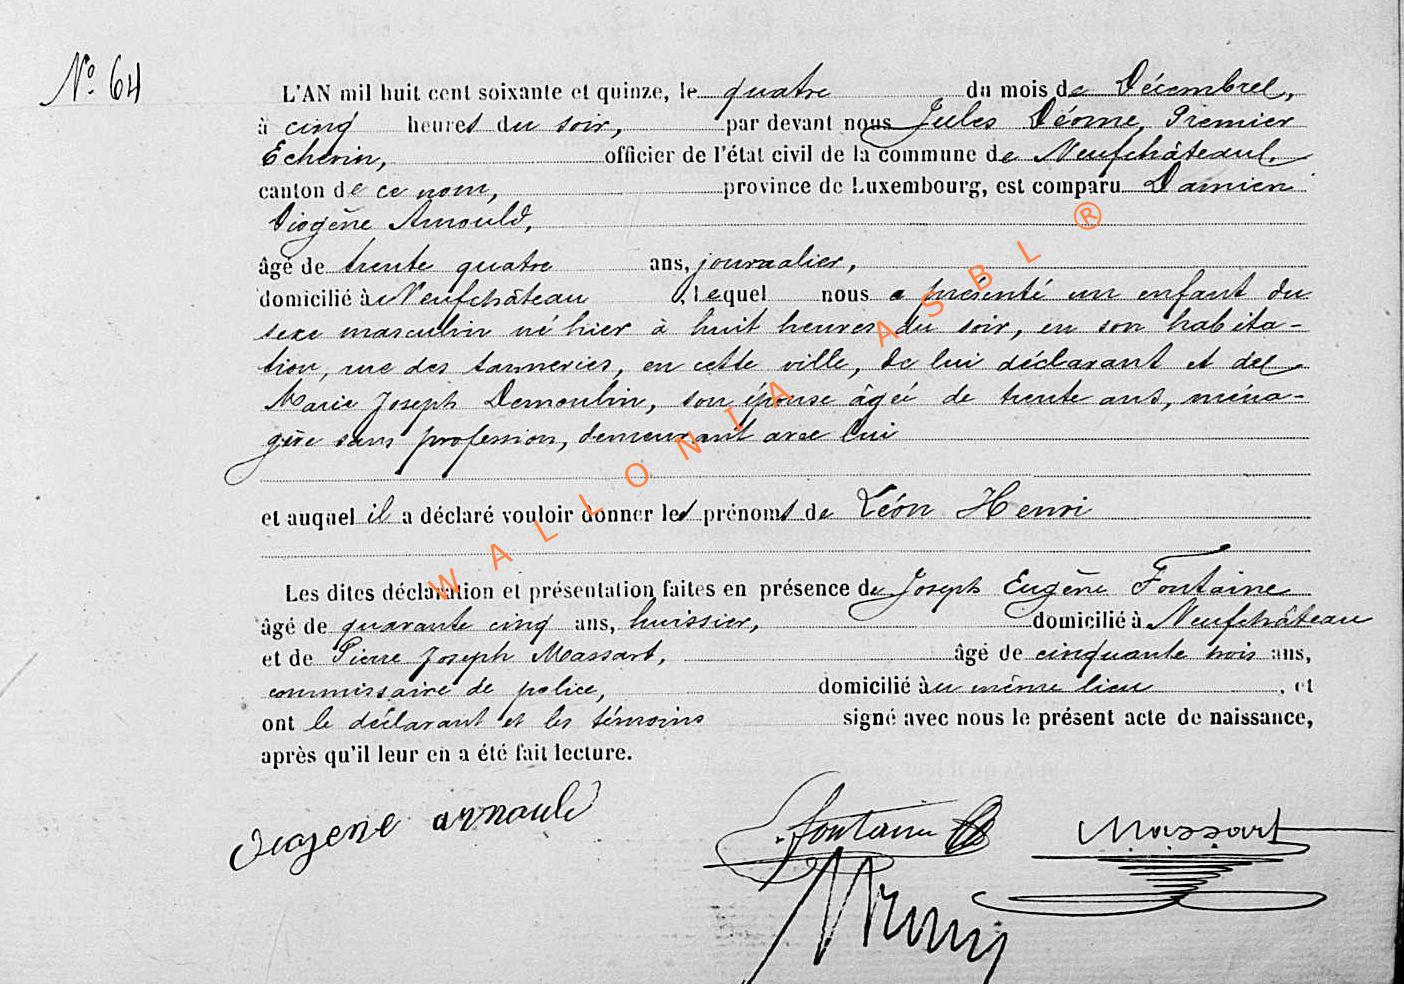 N° 64
L'AN mil huit cent soixante et quinze, le quatre du mois de Décembre,
à cinq heures du soir, par devant nous Jules Déome, Premier
Echevin, officier de l'état civil de la commune de Neufchâteau,
canton de ce nom, province de Luxembourg, est comparu Damien
Diogène Arnould,
âgé de trente quatre ans, journalier,
domicilié à Neufchâteau, lequel nous a présenté un enfant du
sexe masculin né hier à huit heures du soir, en son habita-
tion, rue des tanneries, en cette ville, de lui déclarant et de
Marie Joseph Demoulin, son épouse âgée de trente ans, ména-
gère sans profession, demeurant avec lui
et auquel il a déclaré vouloir donner les prénoms de Léon Henri
Les dites déclaration et présentation faites en présence de Joseph Eugène Fontaine
âgé de quarante cinq ans, huissier, domicilié à Neufchâteau
et de Pierre Joseph Massart, âgé de cinquante trois ans,
commissaire de police, domicilié au même lieu, et
ont le déclarant et les témoins signé avec nous le présent acte de naissance,
après qu'il leur en a été fait lecture.
diogene arnould
Fontaine
Massart
WALLONIA ASBL ®